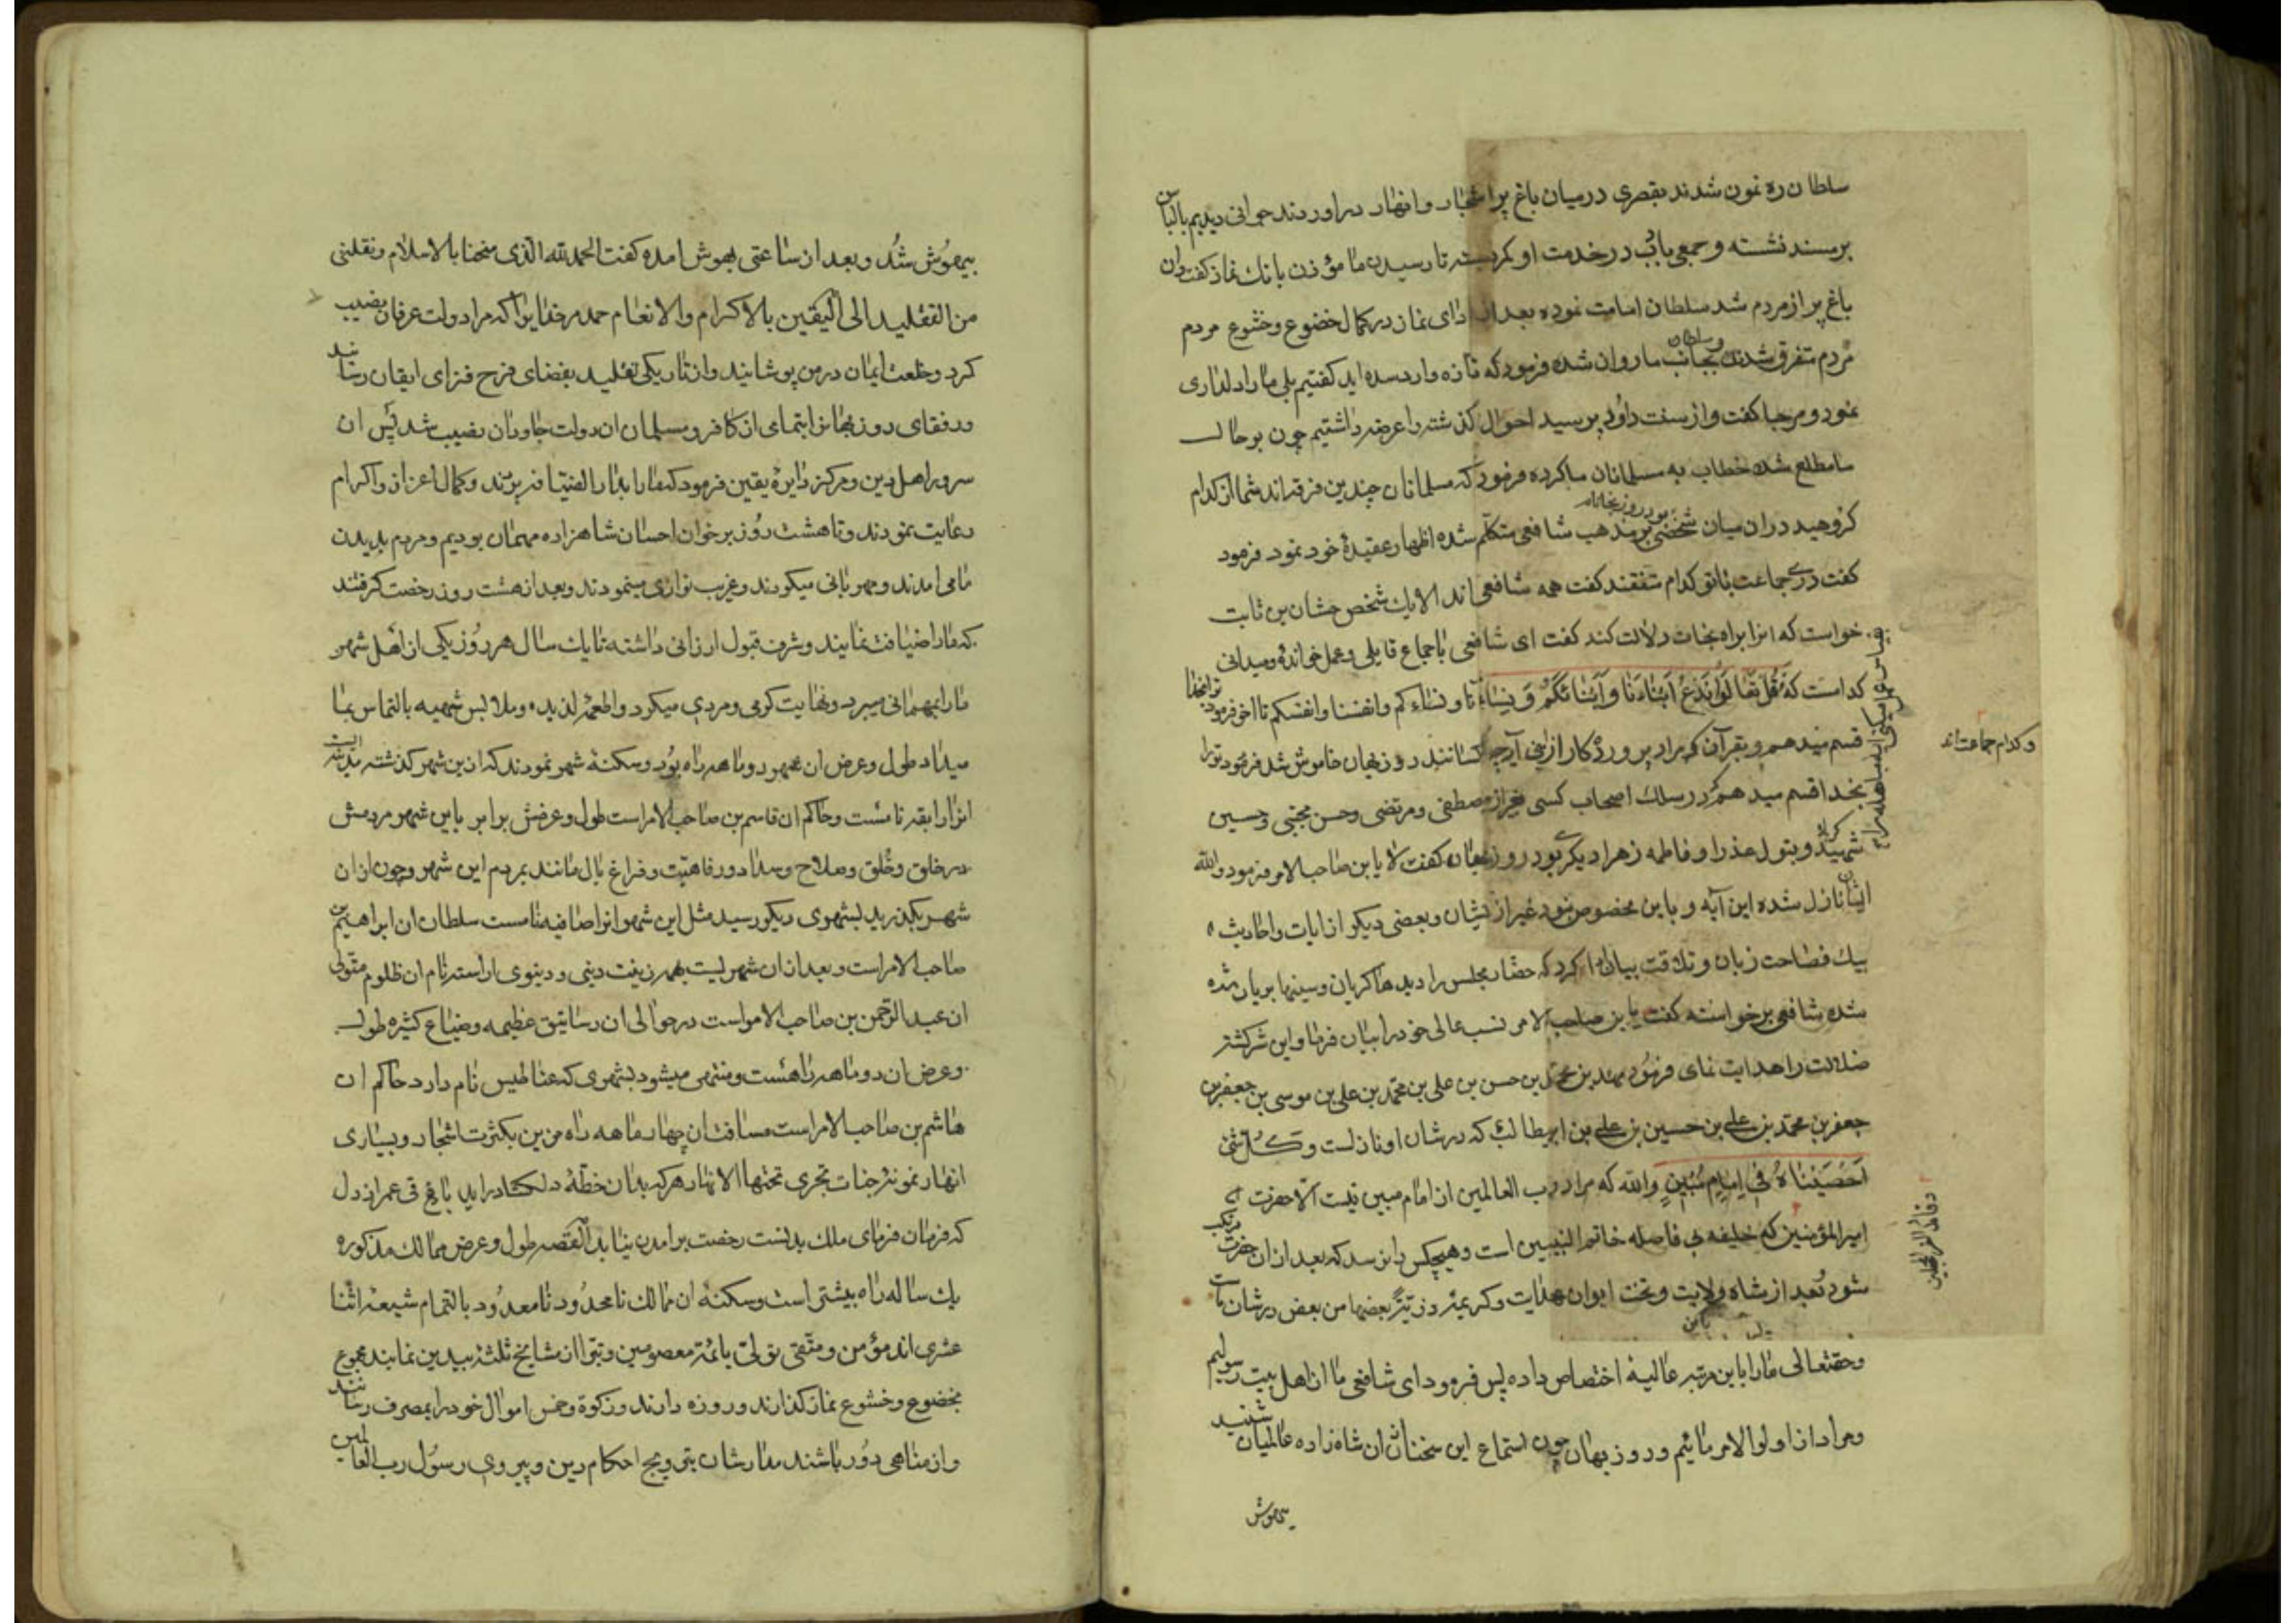 سلطان ره نمون شدند بقصری در میان باغ پر اشجار و انهار در اوردند جوانی دیدیم با لباس
بر مسند نشسته و جمعی باادب در خدمت او کمر بسته تا رسیدن ما مؤذن بانك نماز کفت و ان
باغ پر از مردم شد سلطان امامت نموده بعد از ادای نماز در کمال خضوع و خشوع مردم
مردم متفرق شدند و سلطان بجانب ما روان شده فرمود که تازه وارد شده اید کفتیم بلی ما را دلداری
نمود و مرحبا کفت و از سنت داود پرسید احوال کذشته را عرضه داشتیم چون بر حال
ما مطلع شد خطاب به مسلمانان ما کرده فرمود که مسلمانان چندین فرقه اند شما از کدام
کروهید در ان میان شخصی بر مذهب شافعی متکلم شده اظهار عقیدهٔ خود نمود فرمود
کفت در جماعت با تو کدام متفقند کفت همه شافعی اند الا یك شخص حسان بن ثابت
خواست که انرا براه نجات دلالت کند کفت ای شافعی باجماع قایلی و عمل خواندهٔ و میدانی
کداست که قُل تَعالَوا نَدعُ اَبناءَنا وَاَبنائَکُم وَ نِساءَنا و نساءکم و انفسنا و انفسکم تا اخر فرمود
قسم میدهم و بقرآن که مراد پرورد کار ازین آیه چه کسانند روزبهان خاموش شد فرمود تو را
بخدا قسم میدهم که در سلك اصحاب کسی غیر از مصطفی و مرتضی و حسن مجتبی و حسین
شهید کربلا و بتول عذرا و فاطمه زهرا دیکری بود روزبهان کفت لا یا بن صاحب الامر فرمود والله
ایشان نازل شده این آیه و باین مخصوص نبود غیر از یشان و بعضی دیکر از ایات و احادیث
بیك فصاحت زبان و تلاقت بیان ادا کرد که حضار مجلس را دیدها کریان و سینها بریان شده
شده شافعی برخواسته کفت یا بن صاحب الامر نسب عالی خود را بیان فرما و این سرکشته
ضلالت را هدایت نمای فرمود محمد بن حسن بن علی بن محمد بن علی بن موسی بن جعفر بن
جعفر بن محمد بن علی بن حسین بن علی بن ابیطالب که در شان او نازلست و کُل شئ
اَحصَیناهُ فی اِمامٍ مُبین والله که مراد رب العالمین از امام مبین نیست الا حضرت
امیرالمؤمنین که خلیفه بی فاصله خاتم النبیین است و هیچکس را نرسد که بعد از ان حضرت
شود بعد از شاه ولایت و تخت ایوان هدایت و کریمه ذریّة بعضها من بعض در شان ماست
و حقتعالی ما را باین مرتبه عالیه اختصاص داده پس فرمود ای شافعی ما از اهل بیت رسولیم
و مراد از اولوا الامر مائیم و روزبهان چون استماع این سخنان از ان شاه زاده عالمیان شنید
بیهوش
و کدام جماعت اند
بیهوش شد و بعد از ساعتی بهوش امده کفت الحمد لله الذی منحنا بالاسلام و نقلنی
من التقلید الی الیقین بالاکرام والانعام حمد مر خدایرا که مرا دولت عرفان نصیب
کرد و خلعت ایمان در من پوشانید و از تاریکی تقلید بفضای فرح فزای ایقان رسانید
و رفقای روزبهان بتمامی از کافر و مسلمان ان دولت جاودان نصیب شد پس ان
سرور اهل دین و مرکز دایرهٔ یقین فرمود که ما را بدار الضیافه بردند و کمال اعزاز و اکرام
رعایت نمودند و تا هشت روز بر خوان احسان شاهزاده مهمان بودیم و مردم بدیدن
ما می امدند و مهربانی میکردند و غریب نوازی مینمودند و بعد از هشت روز رخصت کرفتند
که ما را ضیافت نمایند و شرف قبول ارزانی داشته تا یك سال هر روز یکی از اهل شهر
ما را بمهمانی میبرد و نهایت کرمی و مردی میکرد و اطعمهٔ لذیذه و ملابس شهیه بالتماس بما
میداد طول و عرض ان شهر دو ماهه راه بود و سکنهٔ شهر نمودند که از ین شهر کذشته مدینه ایست
انرا رایقه نامست و حاکم ان قاسم بن صاحب الامراست طول و عرضش برابر باین شهر مردمش
در خلق و خُلق و صلاح و سداد و رفاهیّت و فراغ بال مانند بمردم این شهر و چون از ان
شهر بکذرید بشهری دیکر رسید مثل این شهر انرا صافیه نامست سلطان ان ابراهیم بن
صاحب الامراست و بعد از ان شهریست بهمه زینت دینی و دینوی اراسته نام ان ظلوم متولی
ان عبد الرحمن بن صاحب الامراست در حوالی ان رساتیق عظیمه و ضیاع کثیره طول
و عرض ان دو ماهه راهست و منتهی میشود بشهری که عناطیس نام دارد حاکم ان
هاشم بن صاحب الامراست مسافت ان چهار ماهه راه مزین بکثرت اشجار و بسیاری
انهار نمونه جنات تجری تحتها الانهار هر که بدان خطّهٔ دلکشا در اید باغ فی عمر از دل
که فرمان فرمای ملك بدنست رخصت برامدن نیابد القصه طول و عرض ممالك مذکوره
یك ساله راه بیشتر است و سکنهٔ ان ممالك نامحدود نامعدود بالتمام شیعهٔ اثنا
عشری اند مؤمن و متقی تولی بائمهٔ معصومین و تبرا از مشایخ ثلثهٔ بیدین نمایند مجموع
بخضوع و خشوع نماز کذارند و روزه دارند و زکوة و خمس اموال خود را بمصرف رسانند
و از مناهی دور باشند مدارشان بترویج احکام دین و پیروی رسول رب العالمین